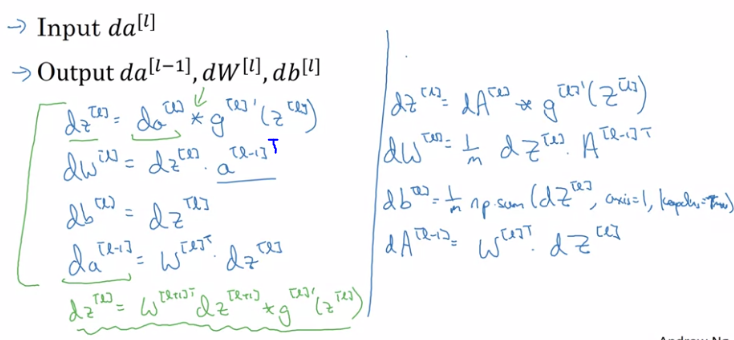 → Input da^[l]
→ Output da^[l-1], dW^[l], db^[l]
dz^[l] = da^[l] * g^[l]'(z^[l])
dW^[l] = dz^[l] · a^[l-1]T
db^[l] = dz^[l]
da^[l-1] = W^[l]T · dz^[l]
dz^[l] = W^[l+1]T dz^[l+1] * g^[l]'(z^[l])
dZ^[l] = dA^[l] * g^[l]'(Z^[l])
dW^[l] = 1/m dZ^[l] · A^[l-1]T
db^[l] = 1/m np.sum(dZ^[l], axis=1, keepdims=True)
dA^[l-1] = W^[l]T · dZ^[l]